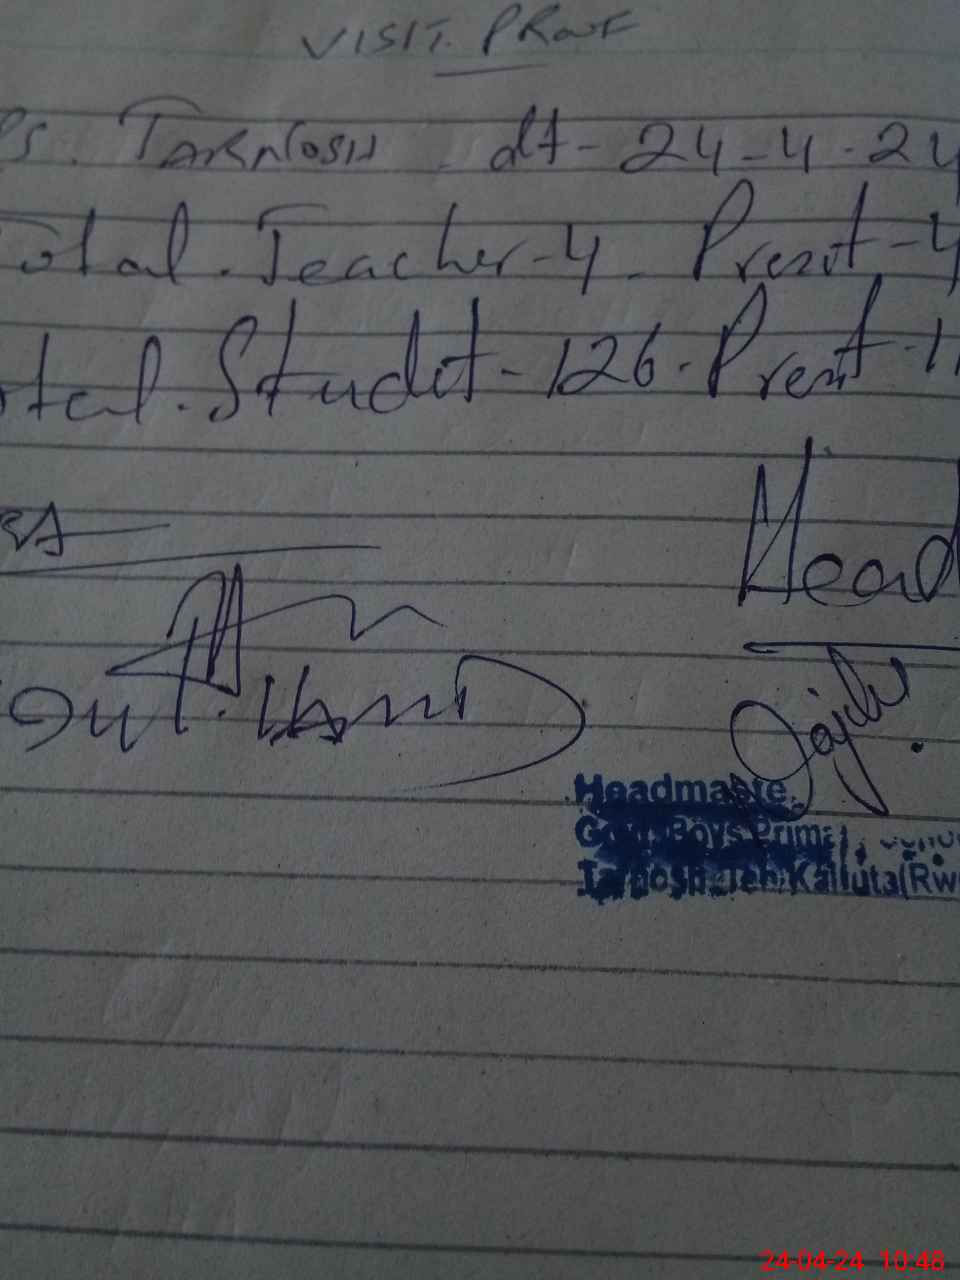 VISIT. PRouf
Ps. TARNOSH. dt- 24-4-24
Total. Teacher-4. Presnt-4
otal. Studet-126. Presnt-1
Head
Headmaste
Govt. Boys Prima
Tarnosh Teh Kalluta(Rw
24-04-24 10:48